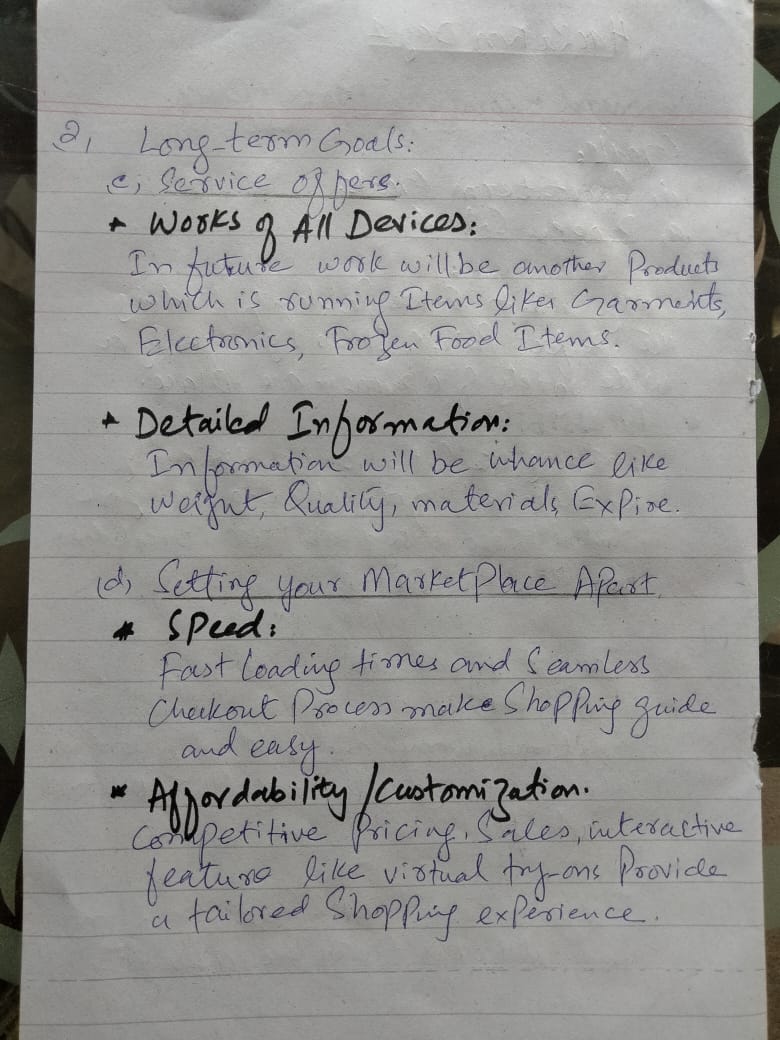 2, Long-term Goals:
c, Service offers.
* Works of All Devices:
In future work will be another Products
which is running Items likes Garments,
Electronics, Frozen Food Items.
* Detailed Information:
Information will be inhance like
weight, Quality, materials, Expire.
(d) Setting your MarketPlace Apart.
* Speed:
Fast Loading times and Seamless
Checkout Process make Shopping guide
and easy.
* Affordability/Customization.
Competitive Pricing, Sales, interactive
feature like virtual try-ons Provide
a tailored Shopping experience.